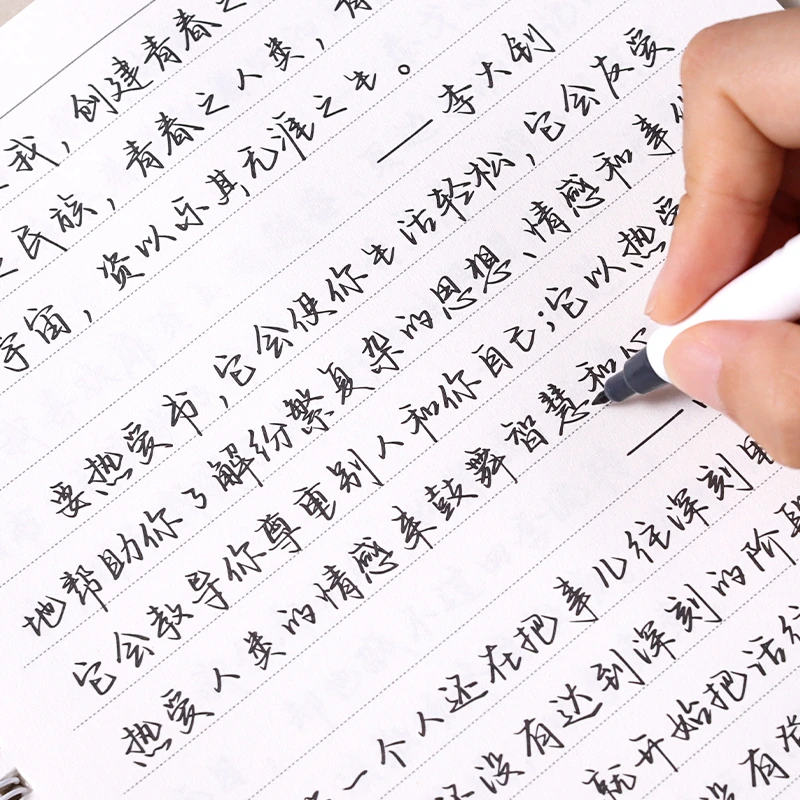 我，创建青春之
民族，青春之人类，青
宇宙，资以乐其无涯之生。
——李大钊
要热爱书，它会使你生活轻松，它会友爱
地帮助你了解纷繁复杂的思想、情感和事件
它会教导你尊重别人和你自己；它以热爱
热爱人类的情感来鼓舞智慧和心
——
一个人还在把事儿往深刻里
还没有达到深刻的阶段
就开始把话往
没有